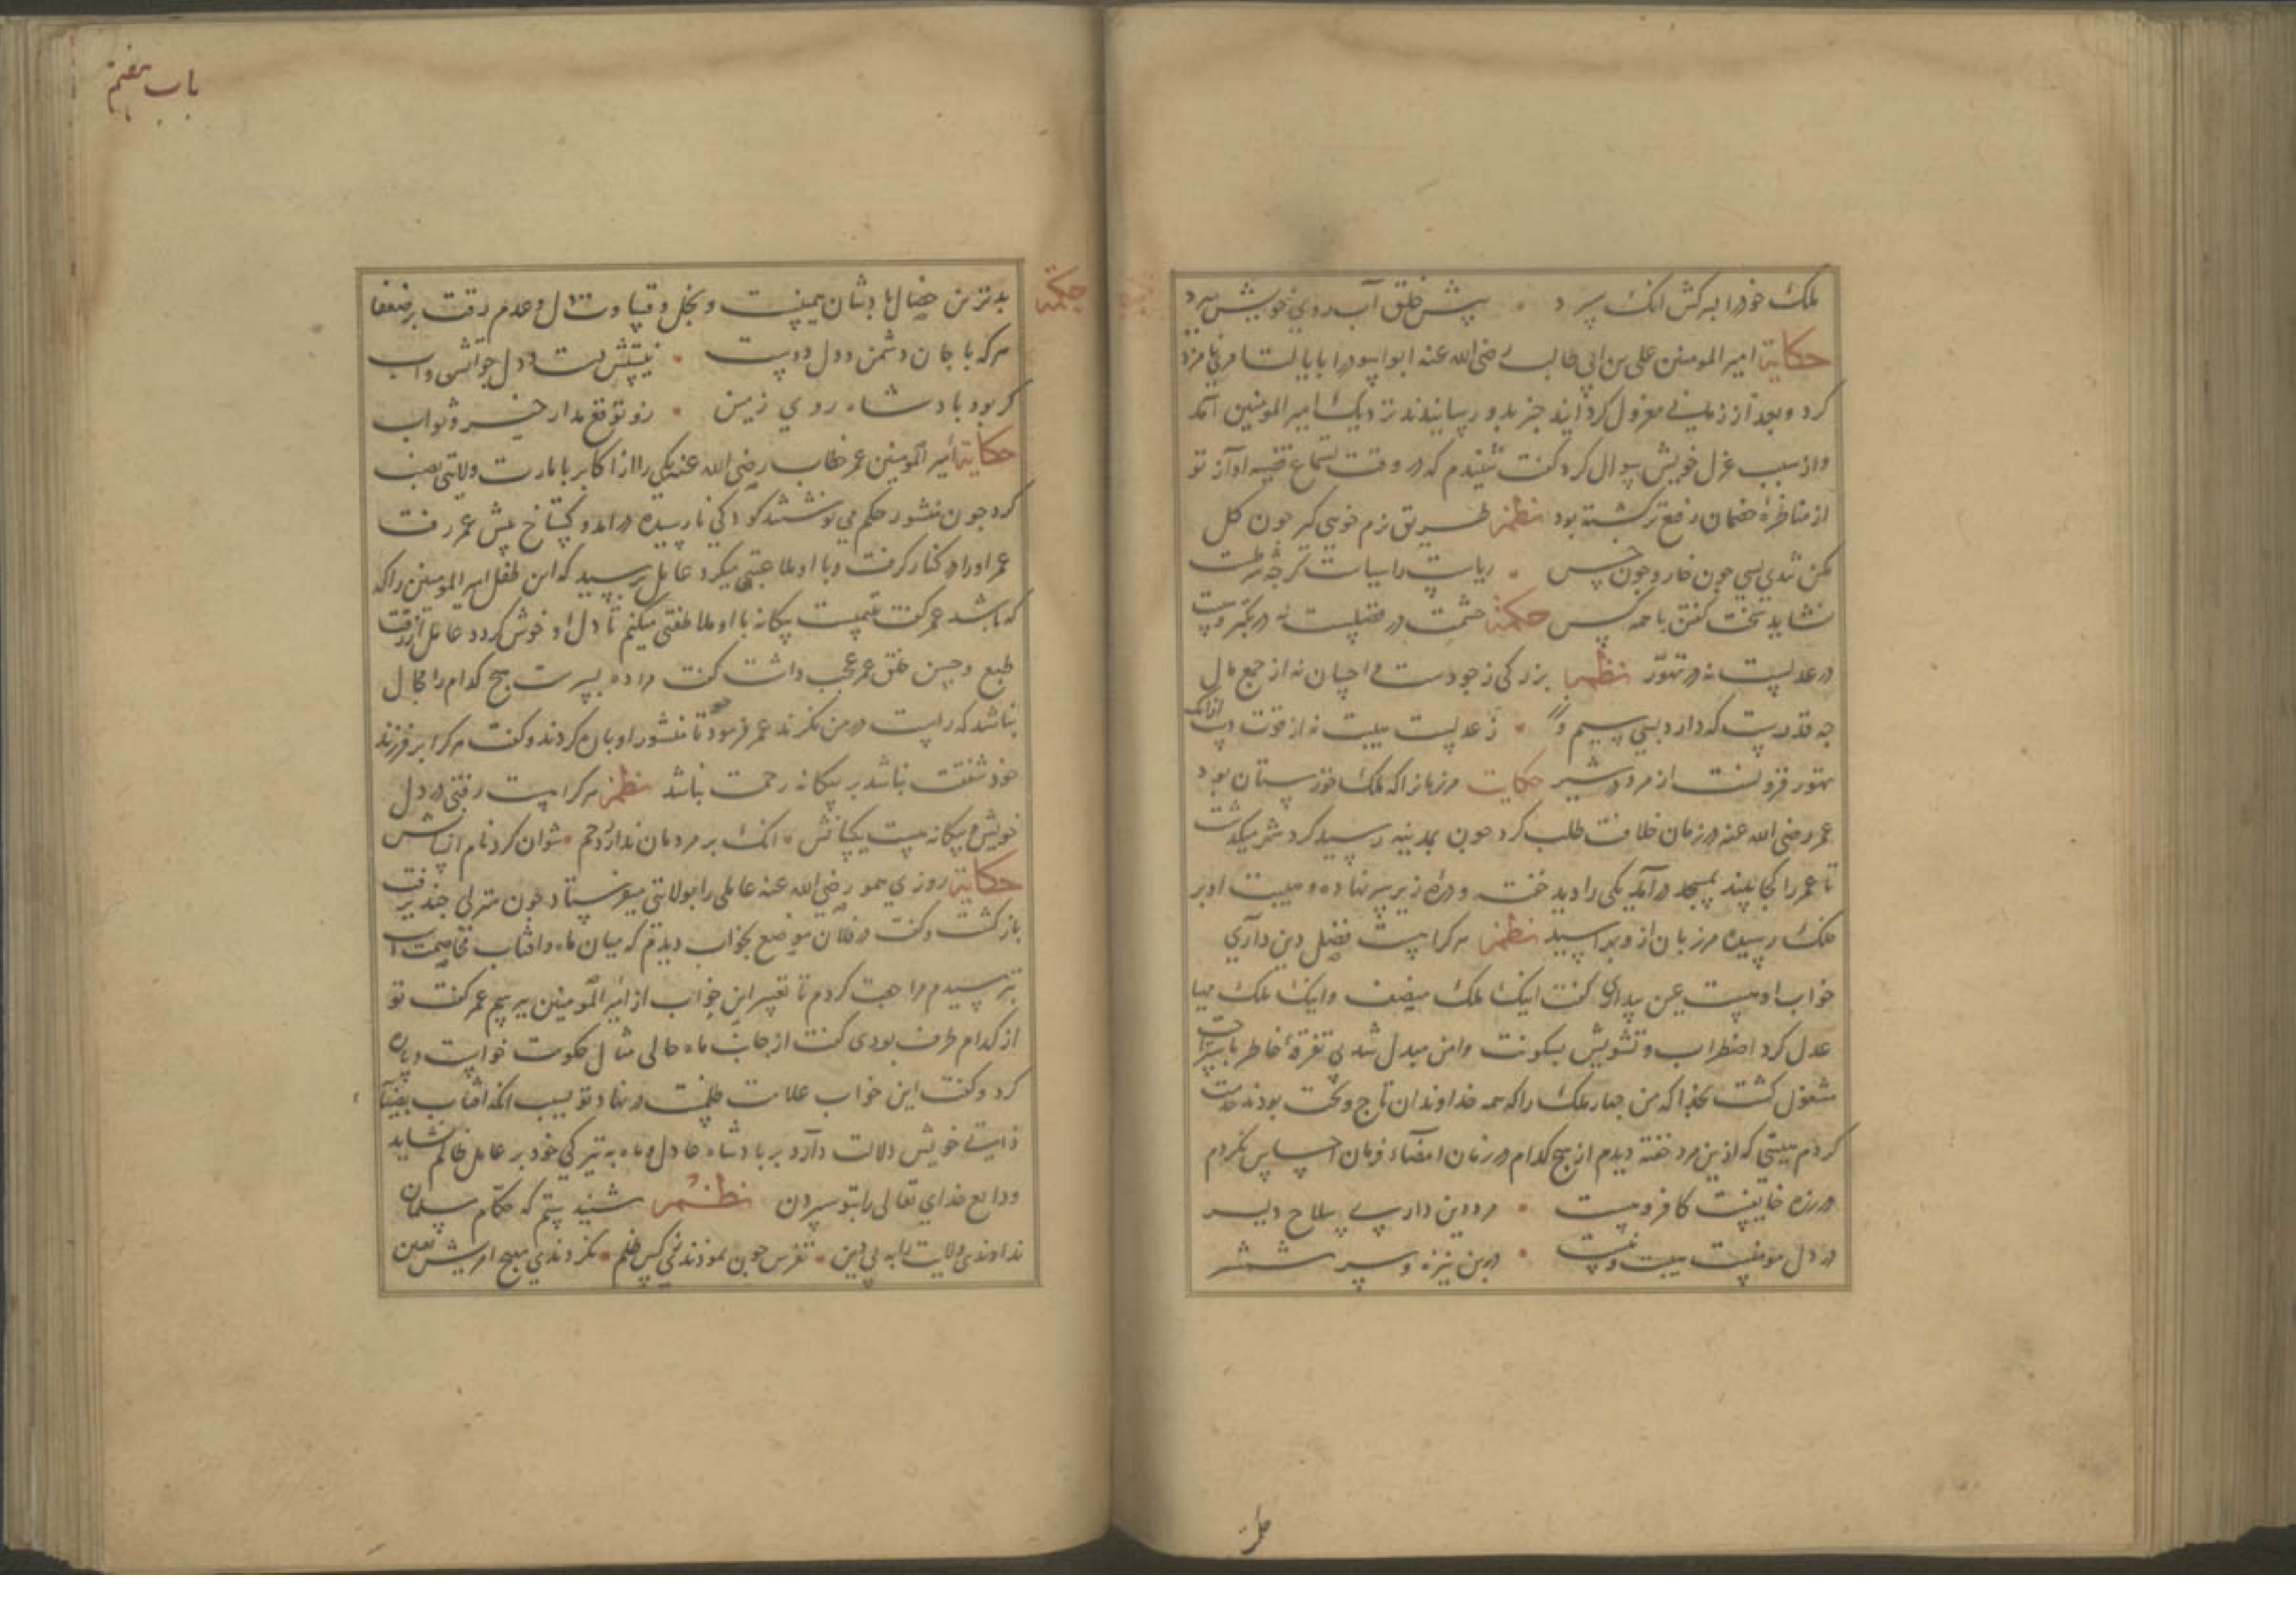 ملک خود را به کش انک سپرد • پیش خلق آب روی خویش برد
حکایة امیر المومنین علی بن ابی طالب رضی الله عنه ابو اسود را بایالت نامزد
کرد و بعد از زمانی معزول کرد ایند خبر بدو رسانیدند نزدیک امیر المومنین آمد
و از سبب عزل خویش سوال کرد کفت شنیدم که در وقت سماع قضیه آواز تو
از مناظرهٔ خصمان رفع تر کشته بود نظم طریق نرم خویی کیر جون کل
مکن تندی بسی جون خار و جون خس • ریاست را سیاست کرجه شرطست
نشاید سخت کفتن با همه کس حکمة حشمت در فضلست نه در تکبر و هیبت
در عدلست نه در تهور نظم بزرکی ز جودست و احسان نه از جمع مال
جه قدرست که دارد بسی سیم و زر • ز عدلست هیبت نه از قوت انک
تهور فزونست از مرد در شیر حکایت مرزبان را که ملک خوزستان بود
عمر رضی الله عنه در زمان خلافت طلب کرد جون بمدینه رسید کرد شهر میکشت
تا عمر را کجا بیند بمسجد درآمد یکی را دید خفته و دره زیر سر نهاده و هیبت او بر
ملک رسیده مرزبان از و هراسید نظم هر کرا هست فضل دین داری
خواب او هست عین بیداری کفت اینک ملک منصف و اینک ملک مهیا
عدل کرد اضطراب و تشویش بسکونت و امن مبدل شد بی تفرقهٔ خاطر باستراحت
مشغول کشت بخدا که من جهار ملک را که همه خداوندان تاج و تخت بودند خدمت
کردم هیبتی که ازین مرد خفته دیدم از هیچ کدام در زمان امضاء فرمان احساس نکردم
لرزه خایفست کافر و هست • مرد دین دار بی سلاح دلیر
در دل مومنست هیبت و نیست • در بن نیزه و سر شمشیر
باب هفتم
حکمة
بدترین خصال پادشان جبنست و بخل و قساوت دل و عدم رقت بر ضعفا
هر که با جان دشمن و دل دوست • نیتش نیست در دل جو آتش و آب
کر بود پادشاه روی زمین • زو توقع مدار خیر و ثواب
حکایة امیر المومنین عمر خطاب رضی الله عنه یکی را از اکابر بامارت ولایتی نصب
کرد جون منشور حکم می نوشتند کودکی نارسیده درآمد و کستاخ پیش عمر رفت
عمر او را در کنار کرفت و با او ملاعبتی میکرد عامل پرسید که این طفل امیر المومنین را که
که باشد عمر کفت یتیمیست بیکانه با او ملاطفتی میکنم تا دل او خوش کردد عامل از رقت
طبع و حسن خلق عمر عجب داشت کفت مرا ده پسرست هیچ کدام را مجال
نباشد که راست در من نکرند عمر فرمود تا منشور او پاره کردند و کفت هر کرا بر فرزند
خود شفقت نباشد بر بیکانه رحمت نباشد نظم هر کرا نیست رقتی در دل
خویش و بیکانه هست یکسانش • انک بر مردمان ندارد رحم • نتوان کرد نام انسانش
حکایة روزی عمر رضی الله عنه عاملی را بولایتی میفرستاد جون منزلی جند برفت
باز کشت و کفت در فلان موضع بخواب دیدم که میان ماه و آفتاب مخاصمت است
بترسیدم مراجعت کردم تا تفسیر این خواب از امیر المومنین بپرسم عمر کفت تو
از کدام طرف بودی کفت از جانب ماه حالی مثال حکومت خواست و پاره
کرد و کفت این خواب علامت ظلمست در نهاد تو بسبب انکه آفتاب بضیا
ذاتی خویش دلالت دارد بر پادشاه عادل و ماه به تیرکی خود بر عامل ظالم نشاید
ودایع خدای تعالی را بتو سپردن نظم شنیدستم که حکام مسلمان
ندادندی ولایت را به بی دین • تفرس جون نمودندی کس ظلم • نکردندی بهیچ امریش تعیین